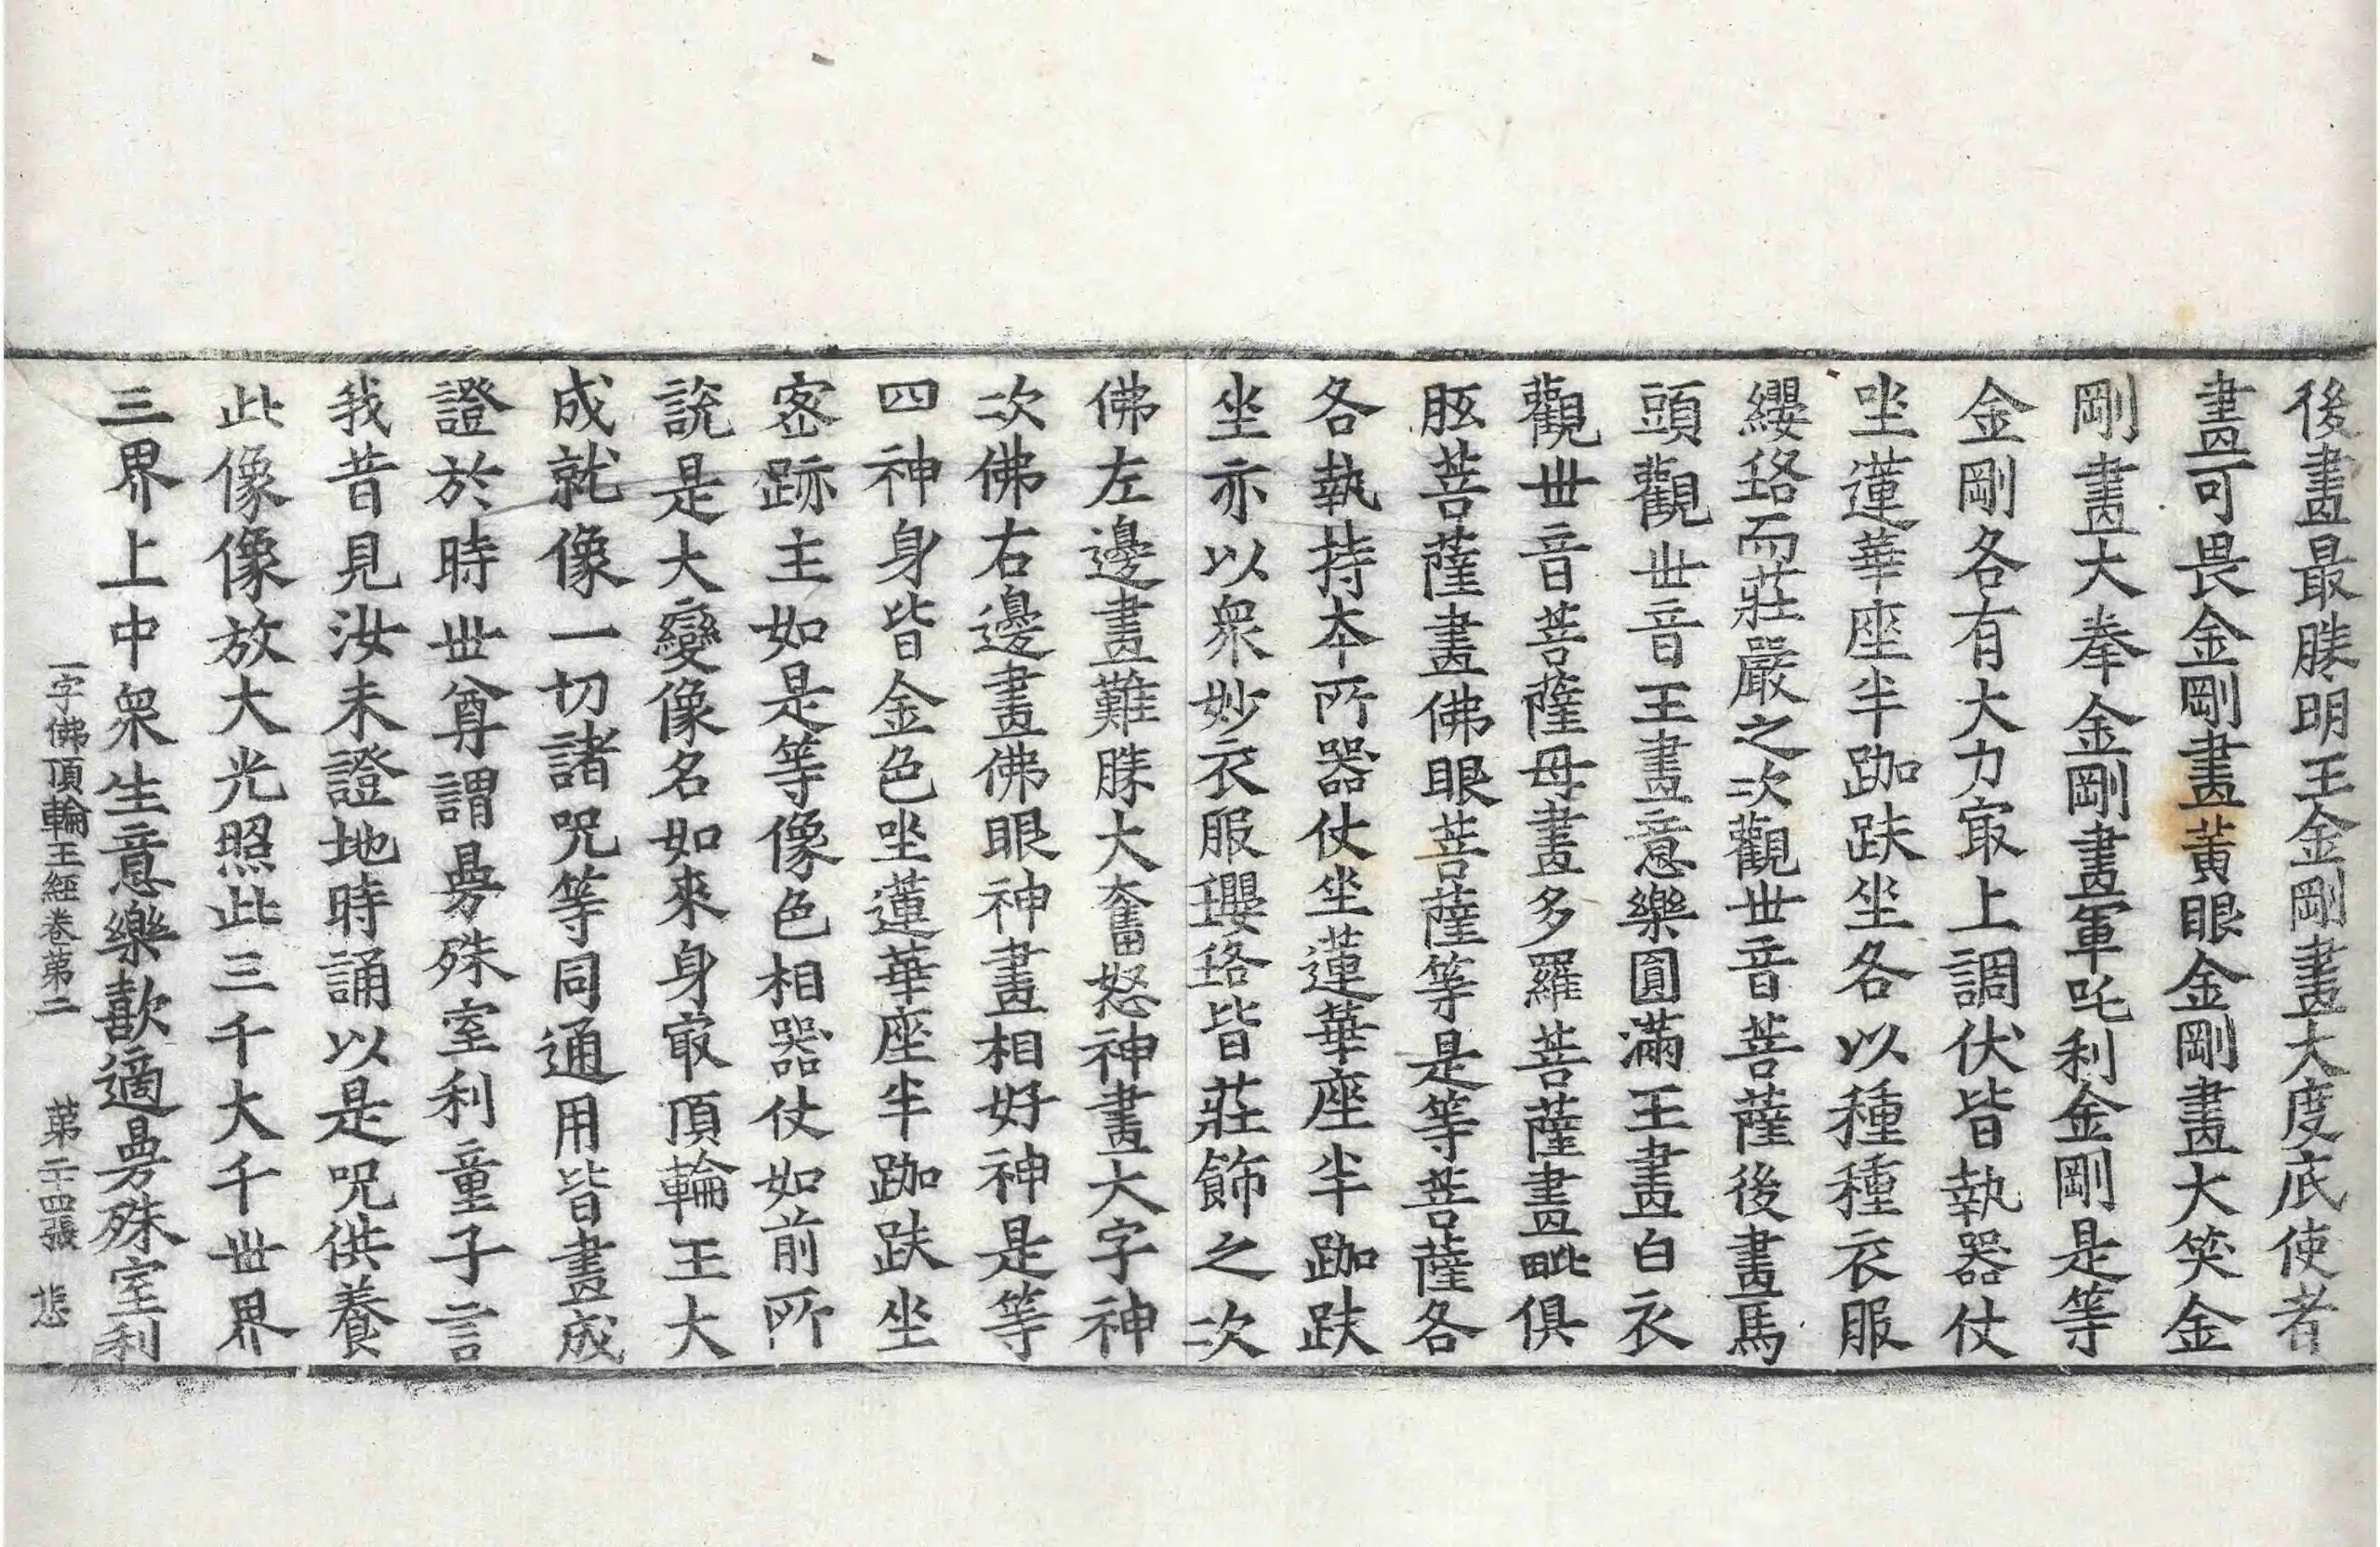 後畫最勝明王金剛畫大度底使者
畫可畏金剛畫黃眼金剛畫大笑金
剛畫大拳金剛畫軍吒利金剛是等
金剛各有大力㝡上調伏皆執器仗
坐蓮華座半跏趺坐各以種種衣服
纓珞而莊嚴之次觀世音菩薩後畫馬
頭觀世音王畫意樂圓滿王畫白衣
觀世音菩薩母畫多羅菩薩畫毗俱
胝菩薩畫佛眼菩薩等是等菩薩各
各執持本所器仗坐蓮華座半跏趺
坐亦以衆妙衣服瓔珞皆莊飾之次
佛左邊畫難勝大奮怒神畫大字神
次佛右邊畫佛眼神畫相好神是等
四神身皆金色坐蓮華座半跏趺坐
密跡主如是等像色相器仗如前所
說是大變像名如來身㝡頂輪王大
成就像一切諸呪等同通用皆畫成
證於時世尊謂曼殊室利童子言
我昔見汝未證地時誦以是呪供養
此像像放大光照此三千大千世界
三界上中衆生意樂歡適曼殊室利
一字佛頂輪王經卷第二 第二十四張 悲